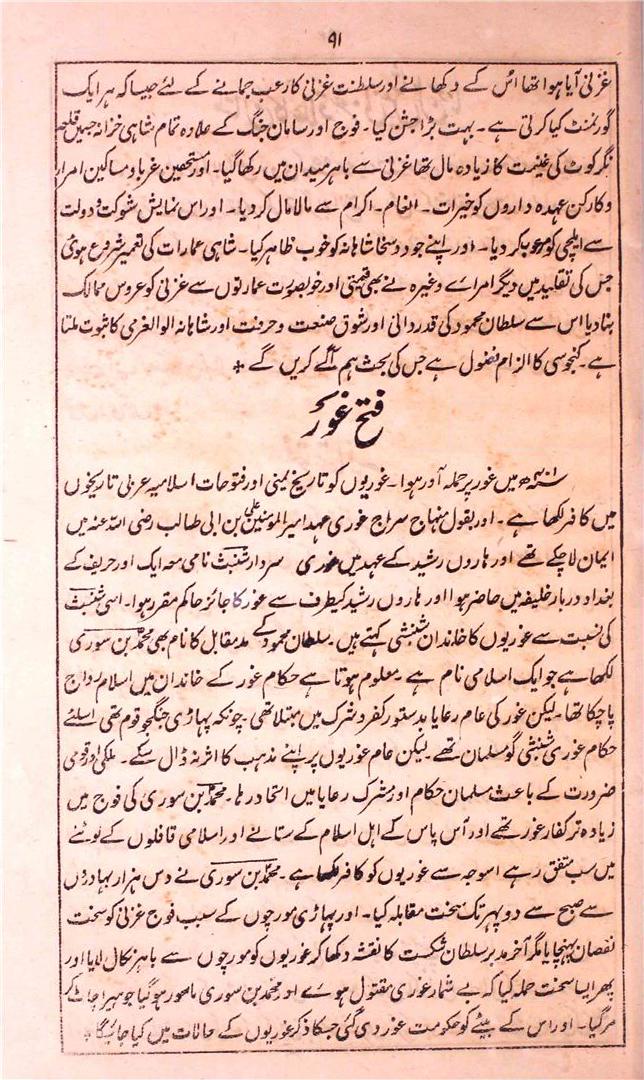 ۹۱
غزنی آیا ہوا تھا اُس کے دکھانے اور سلطنت غزنی کا رعب جمانے کے لئے جیسا کہ ہر ایک
گورنمنٹ کیا کرتی ہے۔ بہت بڑا جشن کیا۔ فوج اور سامان جنگ کے علاوہ تمام شاہی خزانہ جسمیں قلعہ
نگر کوٹ کی غنیمت کا زیادہ مال تھا غزنی سے باہر میدان میں رکھا گیا۔ اور مستحقین غربا و مساکین امرا
و کارکن عہدہ داروں کو خیرات۔ انعام۔ اکرام سے مالا مال کر دیا۔ اور اس نمایش شوکت و دولت
سے ایلچی کو مرعوب کر دیا۔ اور اپنے جود و سخا شاہانہ کو خوب ظاہر کیا۔ شاہی عمارات کی تعمیر شروع ہوئی
جس کی تقلید میں دیگر امراے وغیرہ نے بھی قیمتی اور خوبصورت عمارتوں سے غزنی کو عروس ممالک
بنا دیا اس سے سلطان محمود کی قدر دانی اور شوق صنعت و حرفت اور شاہانہ الوالعزمی کا ثبوت ملتا
ہے۔ کنجوسی کا الزام فضول ہے جس کی بحث ہم آگے کریں گے *
فتح غور
۴۰۱ھ میں غور پر حملہ آور ہوا۔ غوریوں کو تاریخ یمینی اور فتوحات اسلامیہ عربی تاریخوں
میں کافر لکھا ہے۔ اور بقول منہاج سراج غوری عہد امیر المومنین علی بن ابی طالب رضی اللہ عنہ میں
ایمان لا چکے تھے اور ہاروں رشید کے عہد میں غوری سردار شنبث نامی معہ ایک اور حریف کے
بغداد دربار خلیفہ میں حاضر ہوا اور ہاروں رشید کیطرف سے غور کا جائز حاکم مقرر ہوا۔ اسی شنبث
کی نسبت سے غوریوں کا خاندان شنبثی کہتے ہیں۔ سلطان محمود کے مد مقابل کا نام بھی محمد بن سوری
لکھا ہے جو ایک اسلامی نام ہے۔ معلوم ہوتا ہے حکام غور کے خاندان میں اسلام رواج
پا چکا تھا۔ لیکن غور کی عام رعایا بدستور کفر و شرک میں مبتلا تھی۔ چونکہ پہاڑی جنگجو قوم تھی اسلئے
حکام غوری شنبثی گو مسلمان تھے۔ لیکن عام غوریوں پر اپنے مذہب کا اثر نہ ڈال سکے۔ ملکی اور قومی
ضرورت کے باعث مسلمان حکام اور مشرک رعایا میں اتحاد رہا۔ محمد بن سوری کی فوج میں
زیادہ تر کفار غور تھے اور آس پاس کے اہل اسلام کے ستانے اور اسلامی قافلوں کے لوٹنے
میں سب متفق رہے اسوجہ سے غوریوں کو کافر لکھا ہے۔ محمد بن سوری نے دس ہزار بہادروں
سے صبح سے دوپہر تک سخت مقابلہ کیا۔ اور پہاڑی مورچوں کے سبب فوج غزنی کو سخت
نقصان پہنچایا مگر آخر مدبر سلطان شکست کا نقشہ دکھا کہ غوریوں کو مورچوں سے باہر نکال لایا اور
پھر ایسا سخت حملہ کیا کہ بے شمار غوری مقتول ہوے اور محمد بن سوری ماسور ہو گیا جو ہیرا چاٹ کر
مر گیا۔ اور اس کے بیٹے کو حکومت غور دی گئی جسکا ذکر غوریوں کے حالات میں کیا جائیگا *